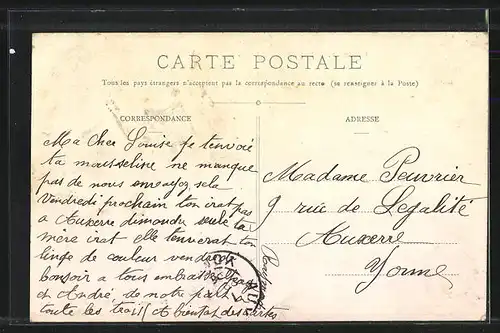 CARTE POSTALE
Tous les pays étrangers n'acceptent pas la correspondance au recto (se renseigner à la Poste)
CORRESPONDANCE
ADRESSE
Ma Cher Louise je tenvoie
ta mousseline ne manque
pas de nous envoyez sela
Vendredi prochain ton irat pas
a Auxerre dimandu seule ta
mère irat elle tenverat ton
linge de couleur vendredi
bonsoir a tous embrasse
et André de notre part a
toute les trois A Bientot des cartes
Madame Peuvrier
9 rue de Legalité
Auxerre
Yonne